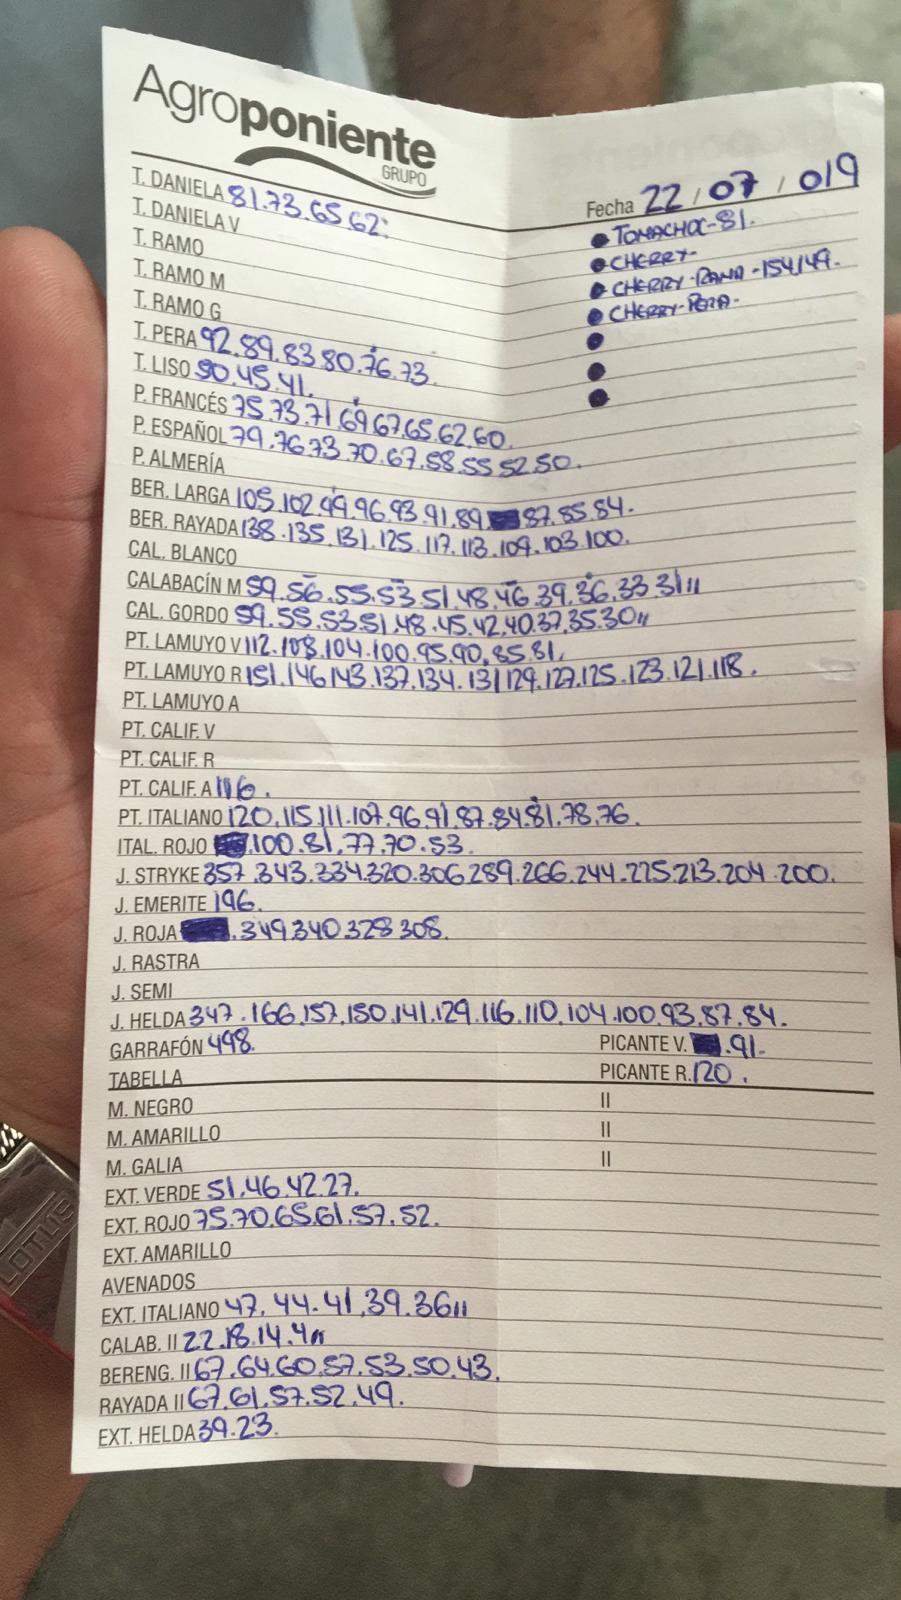 Agroponiente
GRUPO
Fecha 22 / 07 / 019
T. DANIELA 81.73.65 62:
T. DANIELA V
T. RAMO
T. RAMO M
T. RAMO G
● TOMACHOC-81.
● CHERRY-
● CHERRY-RAMA-154,149.
● CHERRY-PERA-
T. PERA 92.89.83 80.76.73.
T. LISO 50.45.41.
P. FRANCÉS 75.73.71.69.67.65.62.60.
P. ESPAÑOL 79.76.73.70.67.58.55.52.50.
P. ALMERÍA
BER. LARGA 105.102.99.96.93.91.89 87.85.84.
BER. RAYADA 138.135.131.125.117.113.109.103.100.
CAL. BLANCO
CALABACÍN M 59.56.55.53.51.48.46.39.36.33.31,,
CAL. GORDO 59.55.53.51.48.45.42.40.37.35.30,,
PT. LAMUYO V 112.108.104.100.95.90.85.81.
PT. LAMUYO R 151.146.143.137.134.131.129.127.125.123.121.118.
PT. LAMUYO A
PT. CALIF. V
PT. CALIF. R
PT. CALIF. A 116.
PT. ITALIANO 120.115.111.107.96.91.87.84.81.78.76.
ITAL. ROJO .100.81.77.70.53.
J. STRYKE 357.343.334.320.306.289.266.244.225.213.204.200.
J. EMERITE 196.
J. ROJA .349.340.328.308.
J. RASTRA
J. SEMI
J. HELDA 347.166.157.150.141.129.116.110.104.100.93.87.84.
GARRAFÓN 498. PICANTE V. .91.
TABELLA PICANTE R. 120.
M. NEGRO II
M. AMARILLO II
M. GALIA II
EXT. VERDE 51.46.42.27.
EXT. ROJO 75.70.65.61.57.52.
EXT. AMARILLO
AVENADOS
EXT. ITALIANO 47.44.41.39.36,,
CALAB. II 22.18.14.4,,
BERENG. II 67.64.60.57.53.50.43.
RAYADA II 67.61.57.52.49.
EXT. HELDA 39.23.
LOTUS